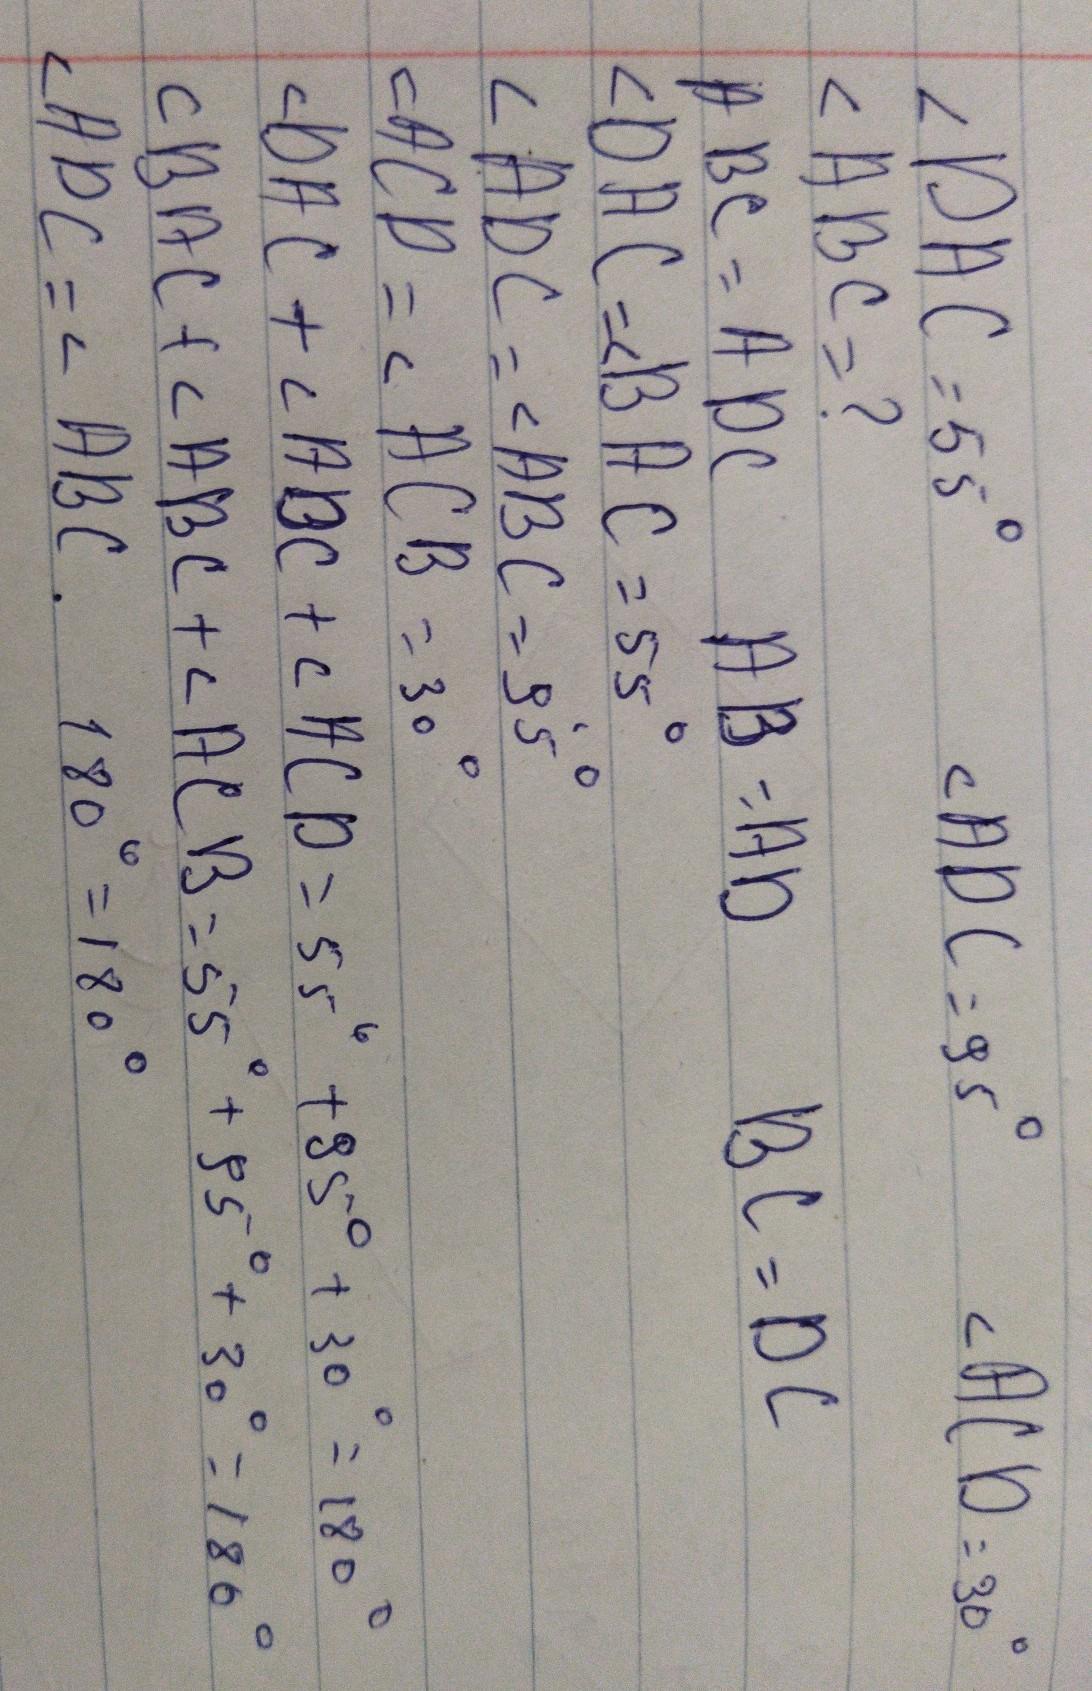 <DAC=55° <ADC=95° <ACD=30°
<ABC=?
ABC=ADC AB=AD BC=DC
<DAC=<BAC=55°
<ADC=<ABC=95°
<ACD=<ACB=30°
<DAC+<ADC+<ACD=55°+95°+30°=180°
<BAC+<ABC+<ACB=55°+95°+30°=180°
<ADC=<ABC. 180°=180°